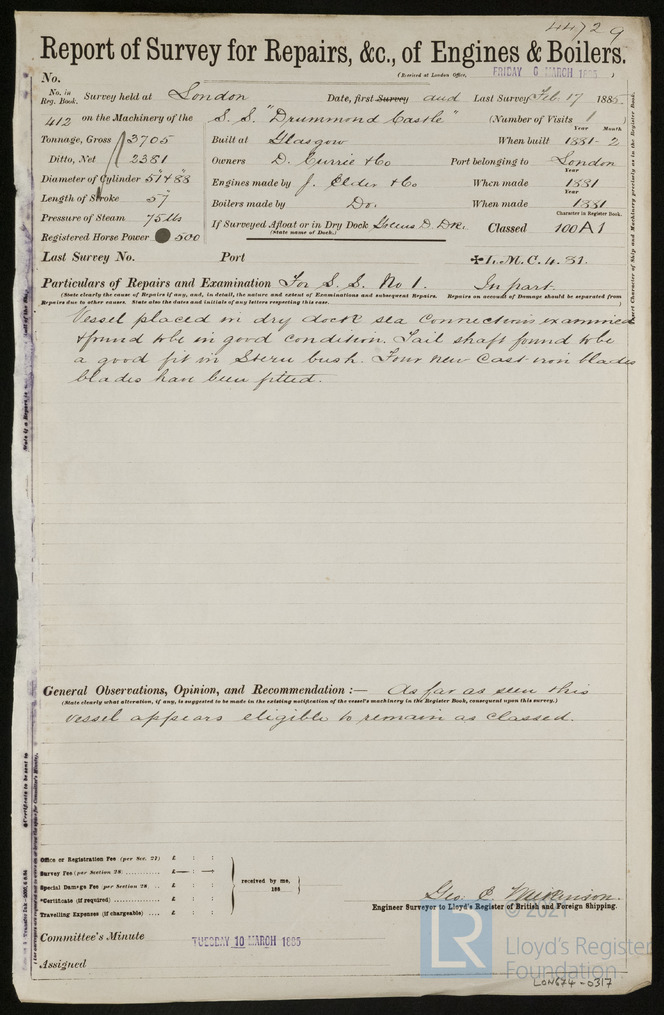 44729
Report of Survey for Repairs, &c., of Engines & Boilers.
(Received at London Office, FRIDAY 6 MARCH 1885 )
No.
No. in Reg. Book. Survey held at London Date, first Survey and Last Survey Feb. 17 1885
412 on the Machinery of the S. S. "Drummond Castle" (Number of Visits 1 )
Year Month
Tonnage, Gross 3705 Built at Glasgow When built 1881-2
Ditto, Net 2381 Owners D. Currie & Co Port belonging to London
Year
Diameter of Cylinder 51 & 88 Engines made by J. Elder & Co When made 1881
Year
Length of Stroke 57 Boilers made by Do. When made 1881
Character in Register Book.
Pressure of Steam 75 lbs If Surveyed Afloat or in Dry Dock Greens D. Dk. Classed 100A1
(State name of Dock.)
Registered Horse Power 500
Last Survey No. Port ✠L.M.C. 4.81.
Particulars of Repairs and Examination For S. S. No 1. In part.
(State clearly the cause of Repairs if any, and, in detail, the nature and extent of Examinations and subsequent Repairs. Repairs on account of Damage should be separated from
Repairs due to other causes. State also the dates and initials of any letters respecting this case. )
Vessel placed in dry dock sea connections examined
& found to be in good condition. Tail shaft found to be
a good fit in Stern bush. Four new Cast-iron blades
blades have been fitted.
General Observations, Opinion, and Recommendation :— As far as seen this
(State clearly what alteration, if any, is suggested to be made in the existing notification of the vessel's machinery in the Register Book, consequent upon this survey.)
vessel appears eligible to remain as classed.
Office or Registration Fee (per Sec. 27) £ : :
Survey Fee (per Section 28) £ : :
Special Damage Fee (per Section 28 £ : :
*Certificate (if required) £ : :
Travelling Expenses (if chargeable) £ : :
received by me,
188
Geo. C.
Engineer Surveyor to Lloyd's Register of British and Foreign Shipping.
Committee's Minute TUESDAY 10 MARCH 1885
Assigned
LR
© 2021
Lloyd's Register
Foundation
LON674-0317